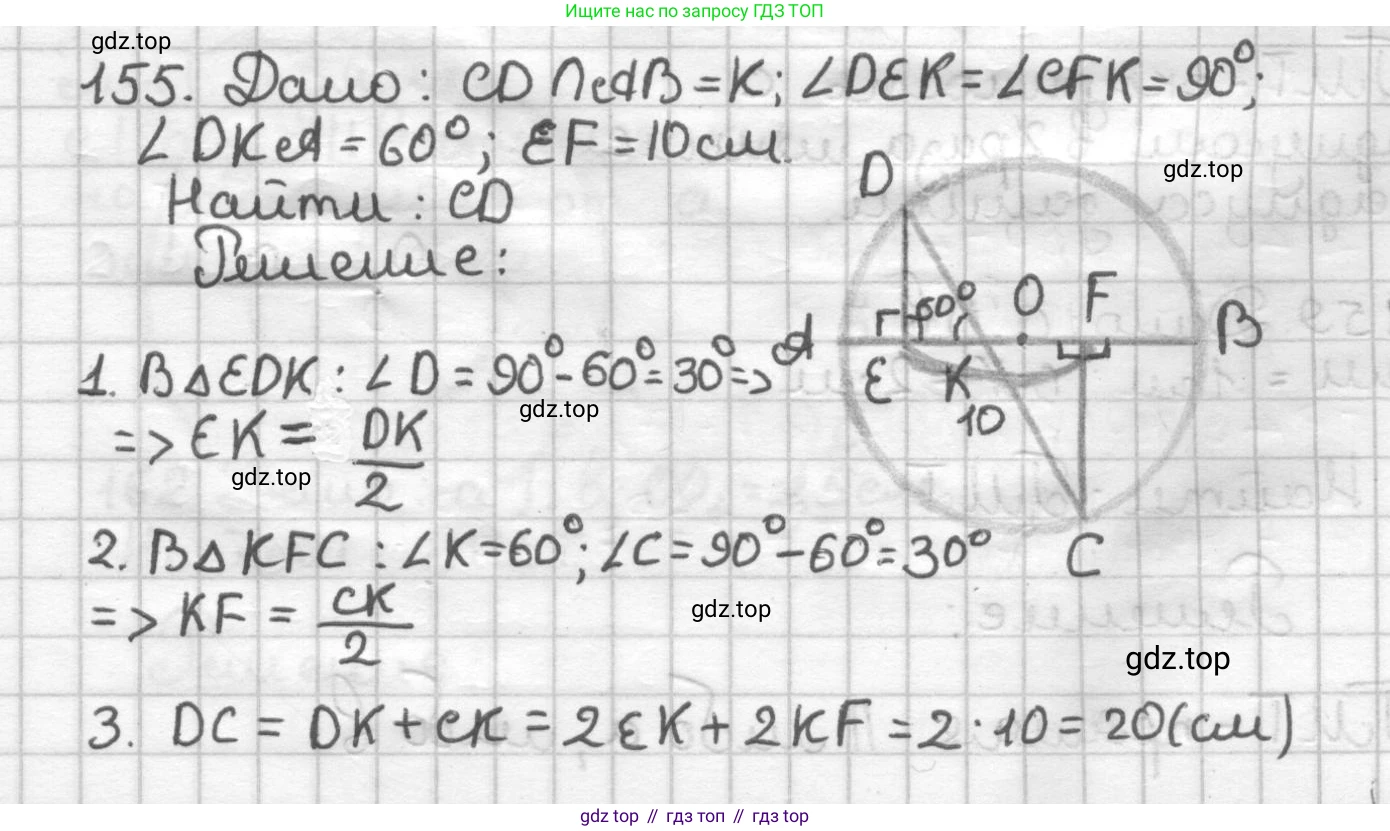 Ищите нас по запросу ГДЗ ТОП
gdz.top
155. Дано: CD ∩ AB = K; ∠DEK = ∠CFK = 90°;
∠DKA = 60°; EF = 10 см.
gdz.top
D
Найти: CD
Решение:
60° O F
A B
E K
10
1. В ΔEDK: ∠D = 90° - 60° = 30° =>
gdz.top
=> EK = DK/2
gdz.top
2. В Δ KFC: ∠K = 60°; ∠C = 90° - 60° = 30°
C
=> KF = CK/2
gdz.top
gdz.top
3. DC = DK + CK = 2EK + 2KF = 2 · 10 = 20 (см)
gdz.top // гдз топ // гдз top